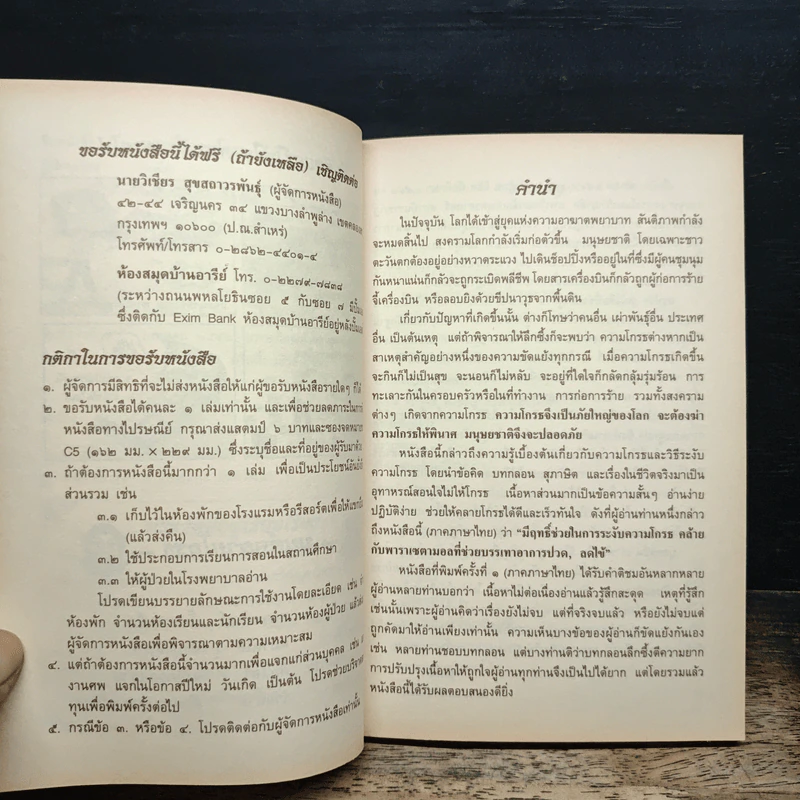 ขอรับหนังสือนี้ได้ฟรี (ถ้ายังเหลือ) เชิญติดต่อ
นายวิเชียร สุขสถาวรพันธุ์ (ผู้จัดการหนังสือ)
๔๒-๔๔ เจริญนคร ๓๔ แขวงบางลำพูล่าง
กรุงเทพฯ ๑๐๖๐๐ (ป.ณ.สำเหร่)
โทรศัพท์/โทรสาร ๐-๒๘๖๒-๔๔๐๑-๔
ห้องสมุดบ้านอารีย์ โทร. ๐-๒๒๗๙-๗๘๓๘
(ระหว่างถนนพหลโยธินซอย ๕ กับซอย ๗
ซึ่งติดกับ Exim Bank ห้องสมุดบ้านอารีย์อยู่หลังปั๊ม
กติกาในการขอรับหนังสือ
๑. ผู้จัดการมีสิทธิที่จะไม่ส่งหนังสือให้แก่ผู้ขอรับหนังสือรายใดๆ ก็ได้
๒. ขอรับหนังสือได้คนละ ๑ เล่มเท่านั้น และเพื่อช่วยลดภาระในการ
หนังสือทางไปรษณีย์ กรุณาส่งแสตมป์ ๖ บาทและซองจดหมาย
C5 (๑๖๒ มม. × ๒๒๙ มม.) ซึ่งระบุชื่อและที่อยู่ของผู้รับมาด้วย
๓. ถ้าต้องการหนังสือนี้มากกว่า ๑ เล่ม เพื่อเป็นประโยชน์
ส่วนรวม เช่น
๓.๑ เก็บไว้ในห้องพักของโรงแรมหรือรีสอร์ตเพื่อให้แขก
(แล้วส่งคืน)
๓.๒ ใช้ประกอบการเรียนการสอนในสถานศึกษา
๓.๓ ให้ผู้ป่วยในโรงพยาบาลอ่าน
โปรดเขียนบรรยายลักษณะการใช้งานโดยละเอียด เช่น
ห้องพัก จำนวนห้องเรียนและนักเรียน จำนวนห้องผู้ป่วย แล้ว
ผู้จัดการหนังสือเพื่อพิจารณาตามความเหมาะสม
๔. แต่ถ้าต้องการหนังสือนี้จำนวนมากเพื่อแจกแก่ส่วนบุคคล เช่น
งานศพ แจกในโอกาสปีใหม่ วันเกิด เป็นต้น โปรดช่วยบริจาค
ทุนเพื่อพิมพ์ครั้งต่อไป
๕. กรณีข้อ ๓. หรือข้อ ๔. โปรดติดต่อกับผู้จัดการหนังสือเท่านั้น
คำนำ
ในปัจจุบัน โลกได้เข้าสู่ยุคแห่งความอาฆาตพยาบาท สันติภาพกำลัง
จะหมดสิ้นไป สงครามโลกกำลังเริ่มก่อตัวขึ้น มนุษยชาติ โดยเฉพาะชาว
ตะวันตกต้องอยู่อย่างหวาดระแวง ไปเดินช็อปปิ้งหรืออยู่ในที่ซึ่งมีผู้คนชุมนุม
กันหนาแน่นก็กลัวจะถูกระเบิดพลีชีพ โดยสารเครื่องบินก็กลัวถูกผู้ก่อการร้าย
จี้เครื่องบิน หรือลอบยิงด้วยขีปนาวุธจากพื้นดิน
เกี่ยวกับปัญหาที่เกิดขึ้นนั้น ต่างก็โทษว่าคนอื่น เผ่าพันธุ์อื่น ประเทศ
อื่น เป็นต้นเหตุ แต่ถ้าพิจารณาให้ลึกซึ้งก็จะพบว่า ความโกรธต่างหากเป็น
สาเหตุสำคัญอย่างหนึ่งของความขัดแย้งทุกกรณี เมื่อความโกรธเกิดขึ้น
จะกินก็ไม่เป็นสุข จะนอนก็ไม่หลับ จะอยู่ที่ใดใจก็กลัดกลุ้มรุ่มร้อน การ
ทะเลาะกันในครอบครัวหรือในที่ทำงาน การก่อการร้าย รวมทั้งสงคราม
ต่างๆ เกิดจากความโกรธ ความโกรธจึงเป็นภัยใหญ่ของโลก จะต้องฆ่า
ความโกรธให้พินาศ มนุษยชาติจึงจะปลอดภัย
หนังสือนี้กล่าวถึงความรู้เบื้องต้นเกี่ยวกับความโกรธและวิธีระงับ
ความโกรธ โดยนำข้อคิด บทกลอน สุภาษิต และเรื่องในชีวิตจริงมาเป็น
อุทาหรณ์สอนใจไม่ให้โกรธ เนื้อหาส่วนมากเป็นข้อความสั้นๆ อ่านง่าย
ปฏิบัติง่าย ช่วยให้คลายโกรธได้ดีและเร็วทันใจ ดังที่ผู้อ่านท่านหนึ่งกล่าว
ถึงหนังสือนี้ (ภาคภาษาไทย) ว่า "มีฤทธิ์ช่วยในการระงับความโกรธ คล้าย
กับพาราเซตามอลที่ช่วยบรรเทาอาการปวด, ลดไข้"
หนังสือที่พิมพ์ครั้งที่ ๑ (ภาคภาษาไทย) ได้รับคำติชมอันหลากหลาย
ผู้อ่านหลายท่านบอกว่า เนื้อหาไม่ต่อเนื่องอ่านแล้วรู้สึกสะดุด เหตุที่รู้สึก
เช่นนั้นเพราะผู้อ่านคิดว่าเรื่องยังไม่จบ แต่ที่จริงจบแล้ว หรือยังไม่จบแต่
ถูกคัดมาให้อ่านเพียงเท่านั้น ความเห็นบางข้อของผู้อ่านก็ขัดแย้งกันเอง
เช่น หลายท่านชอบบทกลอน แต่บางท่านติว่าบทกลอนลึกซึ้งตีความยาก
การปรับปรุงเนื้อหาให้ถูกใจผู้อ่านทุกท่านจึงเป็นไปได้ยาก แต่โดยรวมแล้ว
หนังสือนี้ได้รับผลตอบสนองดียิ่ง